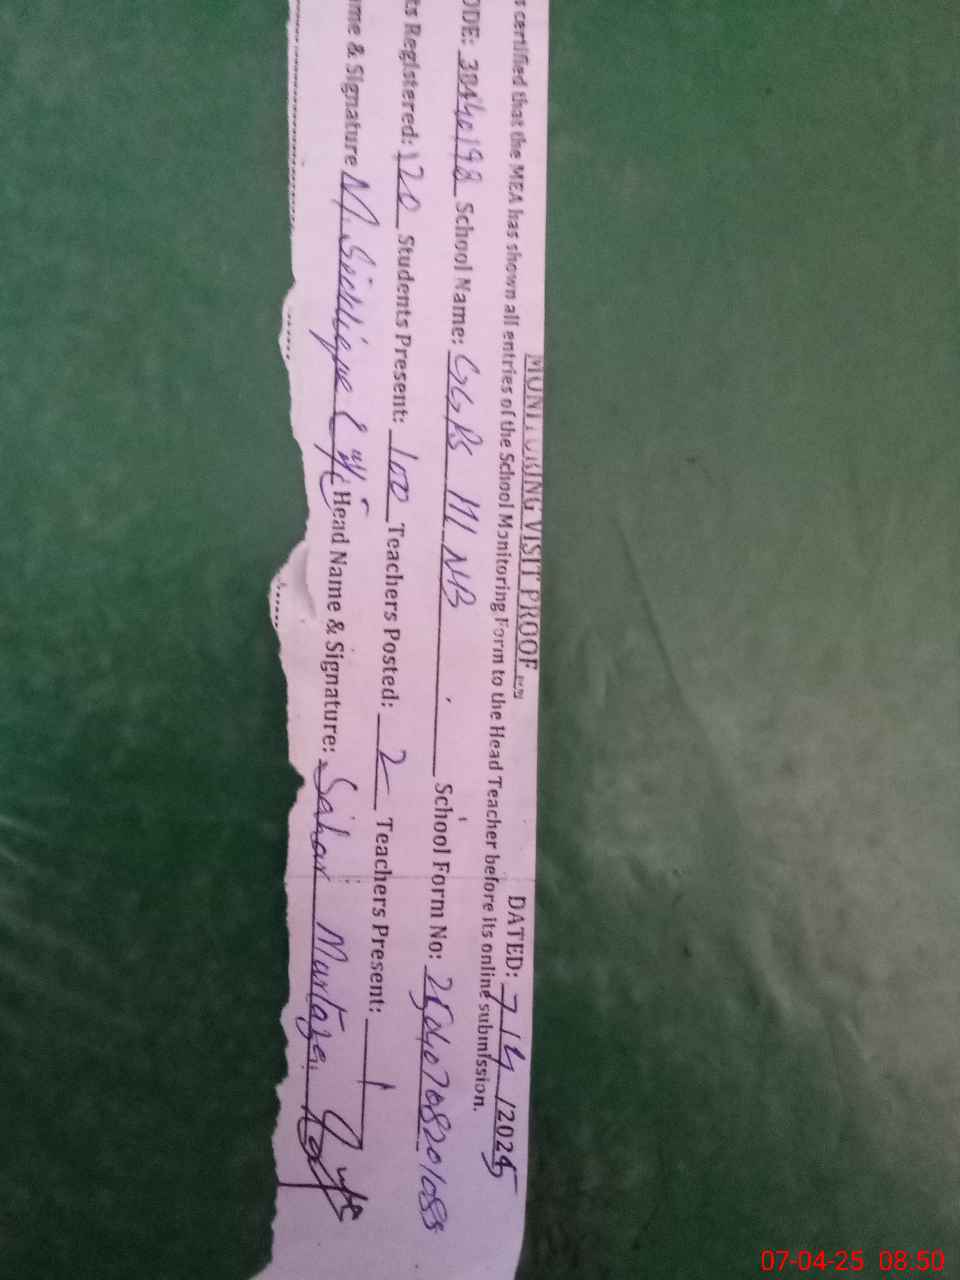 MONITORING VISIT PROOF
DATED: 7/4/2025
s certified that the MEA has shown all entries of the School Monitoring Form to the Head Teacher before its online submission.
ODE: 38440198 School Name: GGPS 111 NB School Form No: 25040708201088
ts Registered: 120 Students Present: 100 Teachers Posted: 2 Teachers Present: 1
me & Signature M. Siddique Head Name & Signature: Sahar Murtaza
07-04-25 08:50